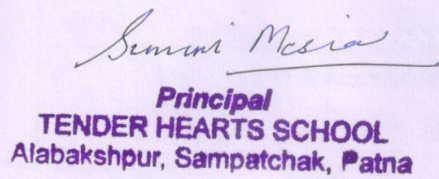 Principal
TENDER HEARTS SCHOOL
Alabakshpur, Sampatchak, Patna